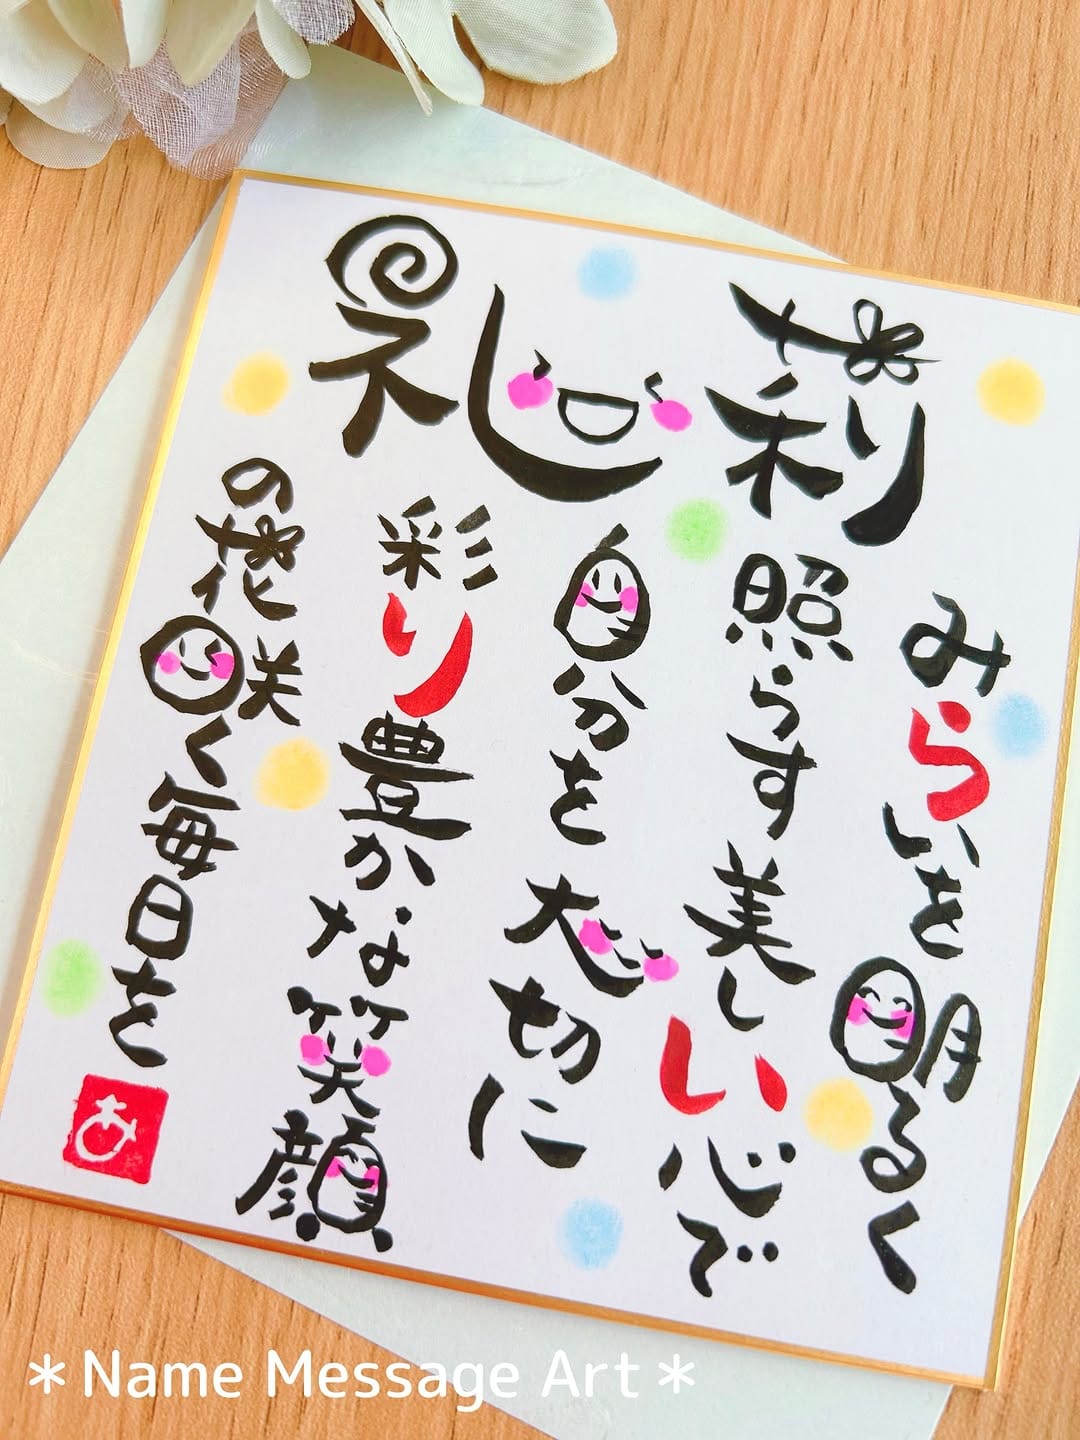 礼莉
みらいを明るく
照らす美しい心で
自分を大切に
彩り豊かな笑顔
の花咲く毎日を
あ
＊Name Message Art＊